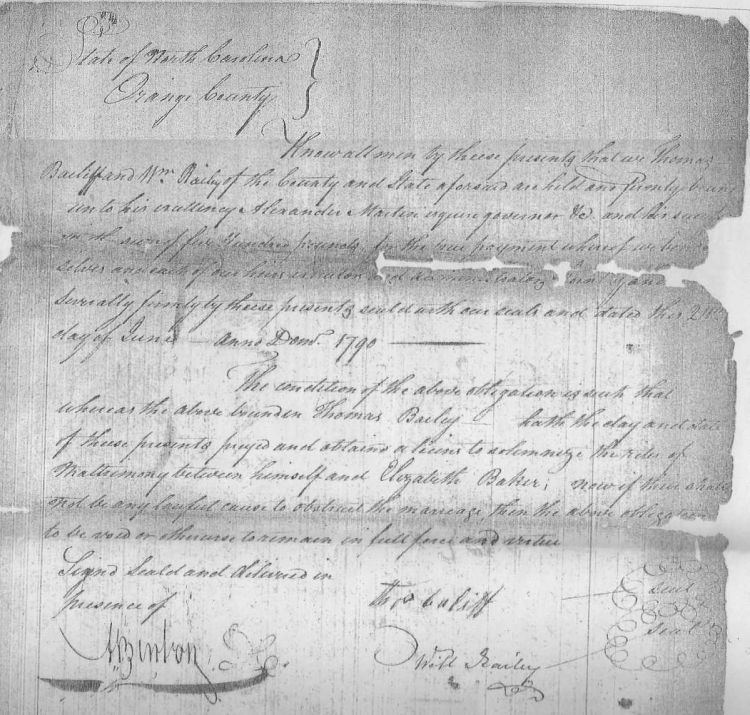 State of North Carolina
Orange County
Know all men by theese presents that we Thomas
Bailiff and Wm Bailey of the County and State aforesaid are held and firmly boun
unto his excellency Alexander Martin esquire governor &c and his
in the sum of five hundred pounds for the true payment whereof we bin
selves and each of our heirs and administrators and
severally firmly by theese presents seald with our seals and dated this
day of June Anno Dom. 1790
The condition of the above obligation is such that
whereas the above bounden Thomas Bailey hath the day and date
of theese presents prayed and obtaind a licens to solemnize the rites of
Mattrimony between himself and Elizabeth Baker; now if their shall
not be any lawful cause to obstruct the marriage then the above obligation
to be void or otherwise to remain in full force and virtue
Signd Seald and delivered in
presence of
Thos baliff seal
ABenton
Will Bailey seal